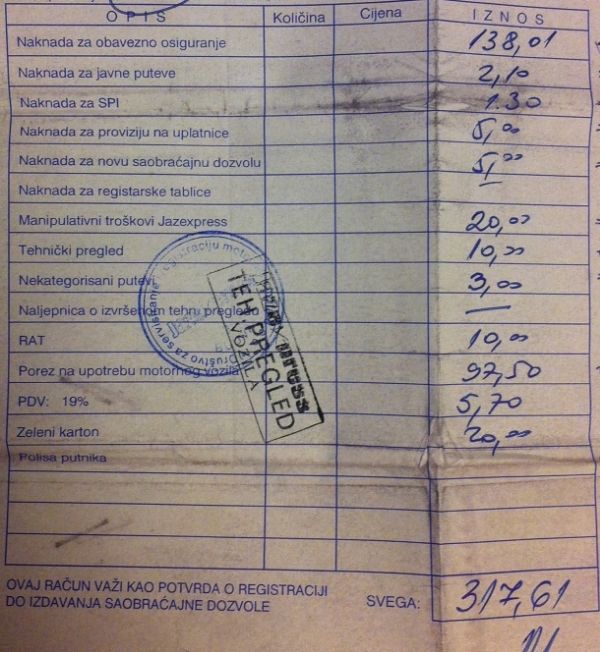 OPIS Količina Cijena IZNOS
Naknada za obavezno osiguranje 138,01
Naknada za javne puteve 2,10
Naknada za SPI 1.30
Naknada za proviziju na uplatnice 5,00
Naknada za novu saobraćajnu dozvolu 5,00
Naknada za registarske tablice
Manipulativni troškovi Jazexpress 20,00
Tehnički pregled 10,00
Nekategorisani putevi 3,00
Naljepnica o izvršenom tehn pregledu —
RAT 10,00
Porez na upotrebu motornog vozila 97,50
PDV: 19% 5,70
Zeleni karton 20,00
Polisa putnika
Društvo za servisiranje registraciju
TEH.PREGLED
VOZILA
OVAJ RAČUN VAŽI KAO POTVRDA O REGISTRACIJI
DO IZDAVANJA SAOBRAĆAJNE DOZVOLE
SVEGA: 317,61